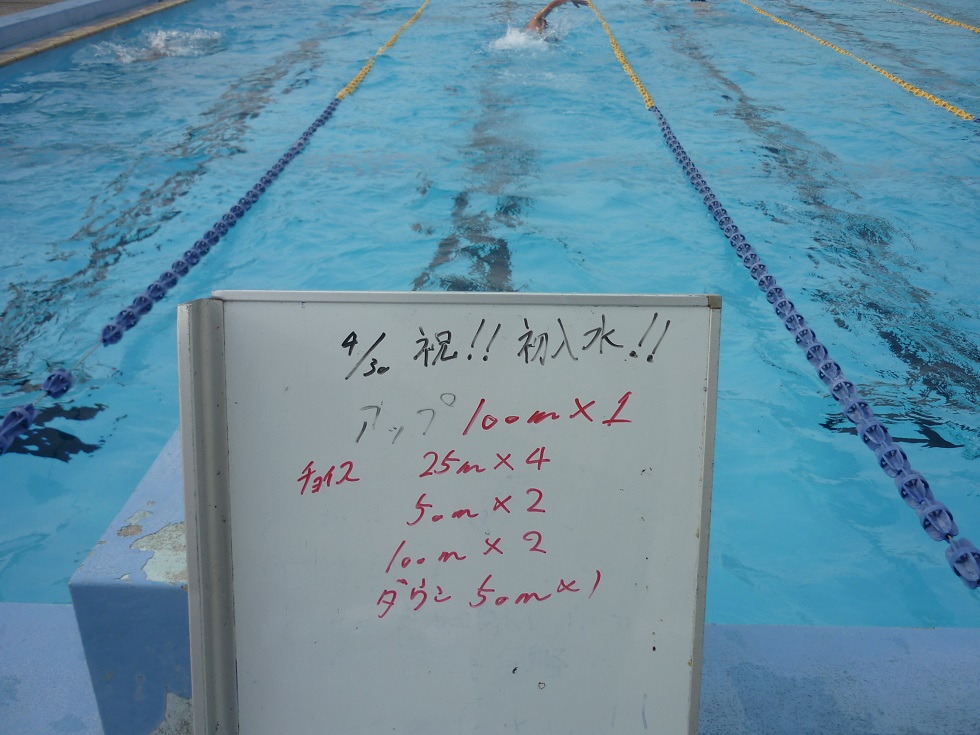 4/30 祝!! 初入水!!
アップ 100m×1
チョイス 25m×4
50m×2
100m×2
ダウン 50m×1